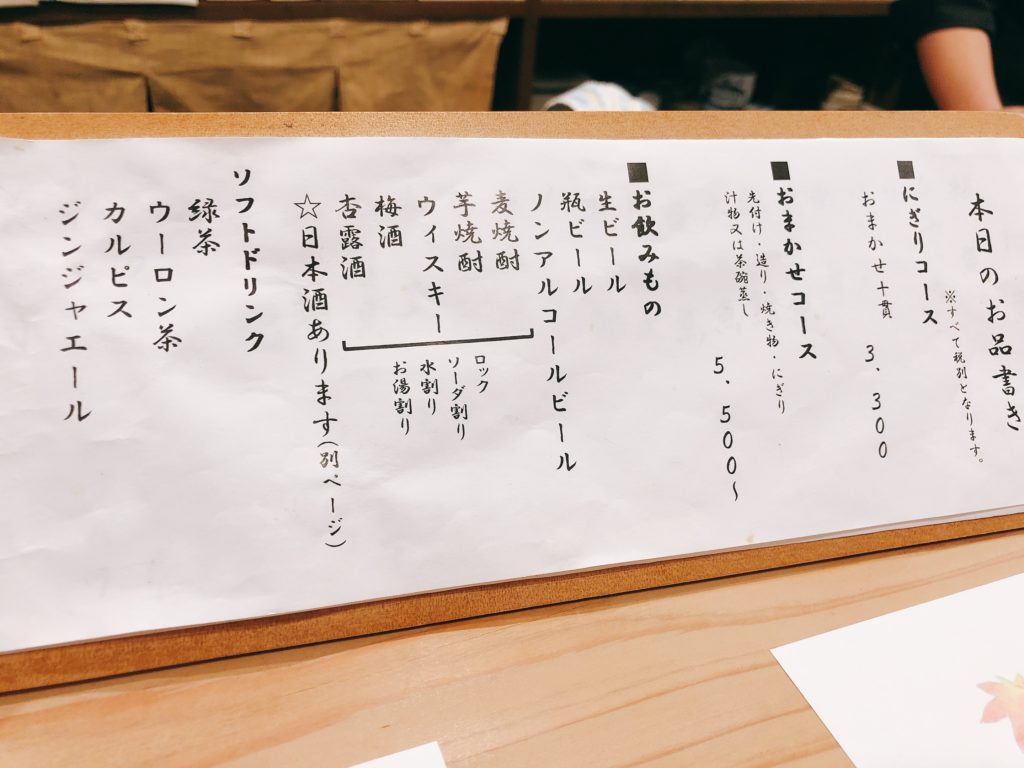 本日のお品書き
※すべて税別となります。
■にぎりコース
おまかせ十貫 3,300
■おまかせコース
先付け・造り・焼き物・にぎり
汁物又は茶碗蒸し
5,500～
■お飲みもの
生ビール
瓶ビール
ノンアルコールビール
麦焼酎
芋焼酎
ウィスキー
梅酒
杏露酒
ロック
ソーダ割り
水割り
お湯割り
☆日本酒あります(別ページ)
ソフトドリンク
緑茶
ウーロン茶
カルピス
ジンジャエール